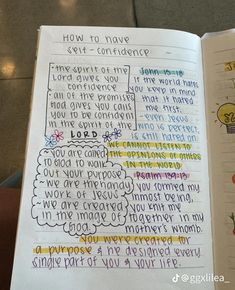 HOW TO HAVE
self-confidence
• the spirit of the
Lord gives you
confidence
• all of the promises
God gives you calls
you to be confident
in the spirit of the
LORD
• you are called
to God to walk
out your purpose
• we are the handy
work of Jesus
• we are created
in the image of
God
John 15:18
if the world hates
you keep in mind
that it hated
me first.
- even Jesus
who is perfect
is still hated on
WE CANNOT LISTEN TO
THE OPENIONS OF others
IN THE WORLD
Psalm 139:13
you formed my
inmost being,
you knit me
together in my
mothers womb.
• you were created for
a purpose & he designed every
single part of you & your life.
@ggxlilea_